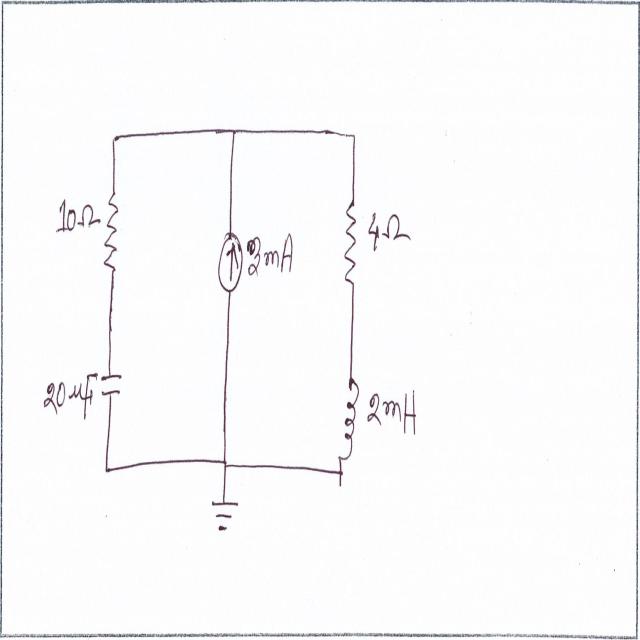 10Ω
3mA
4Ω
20μF
2mH